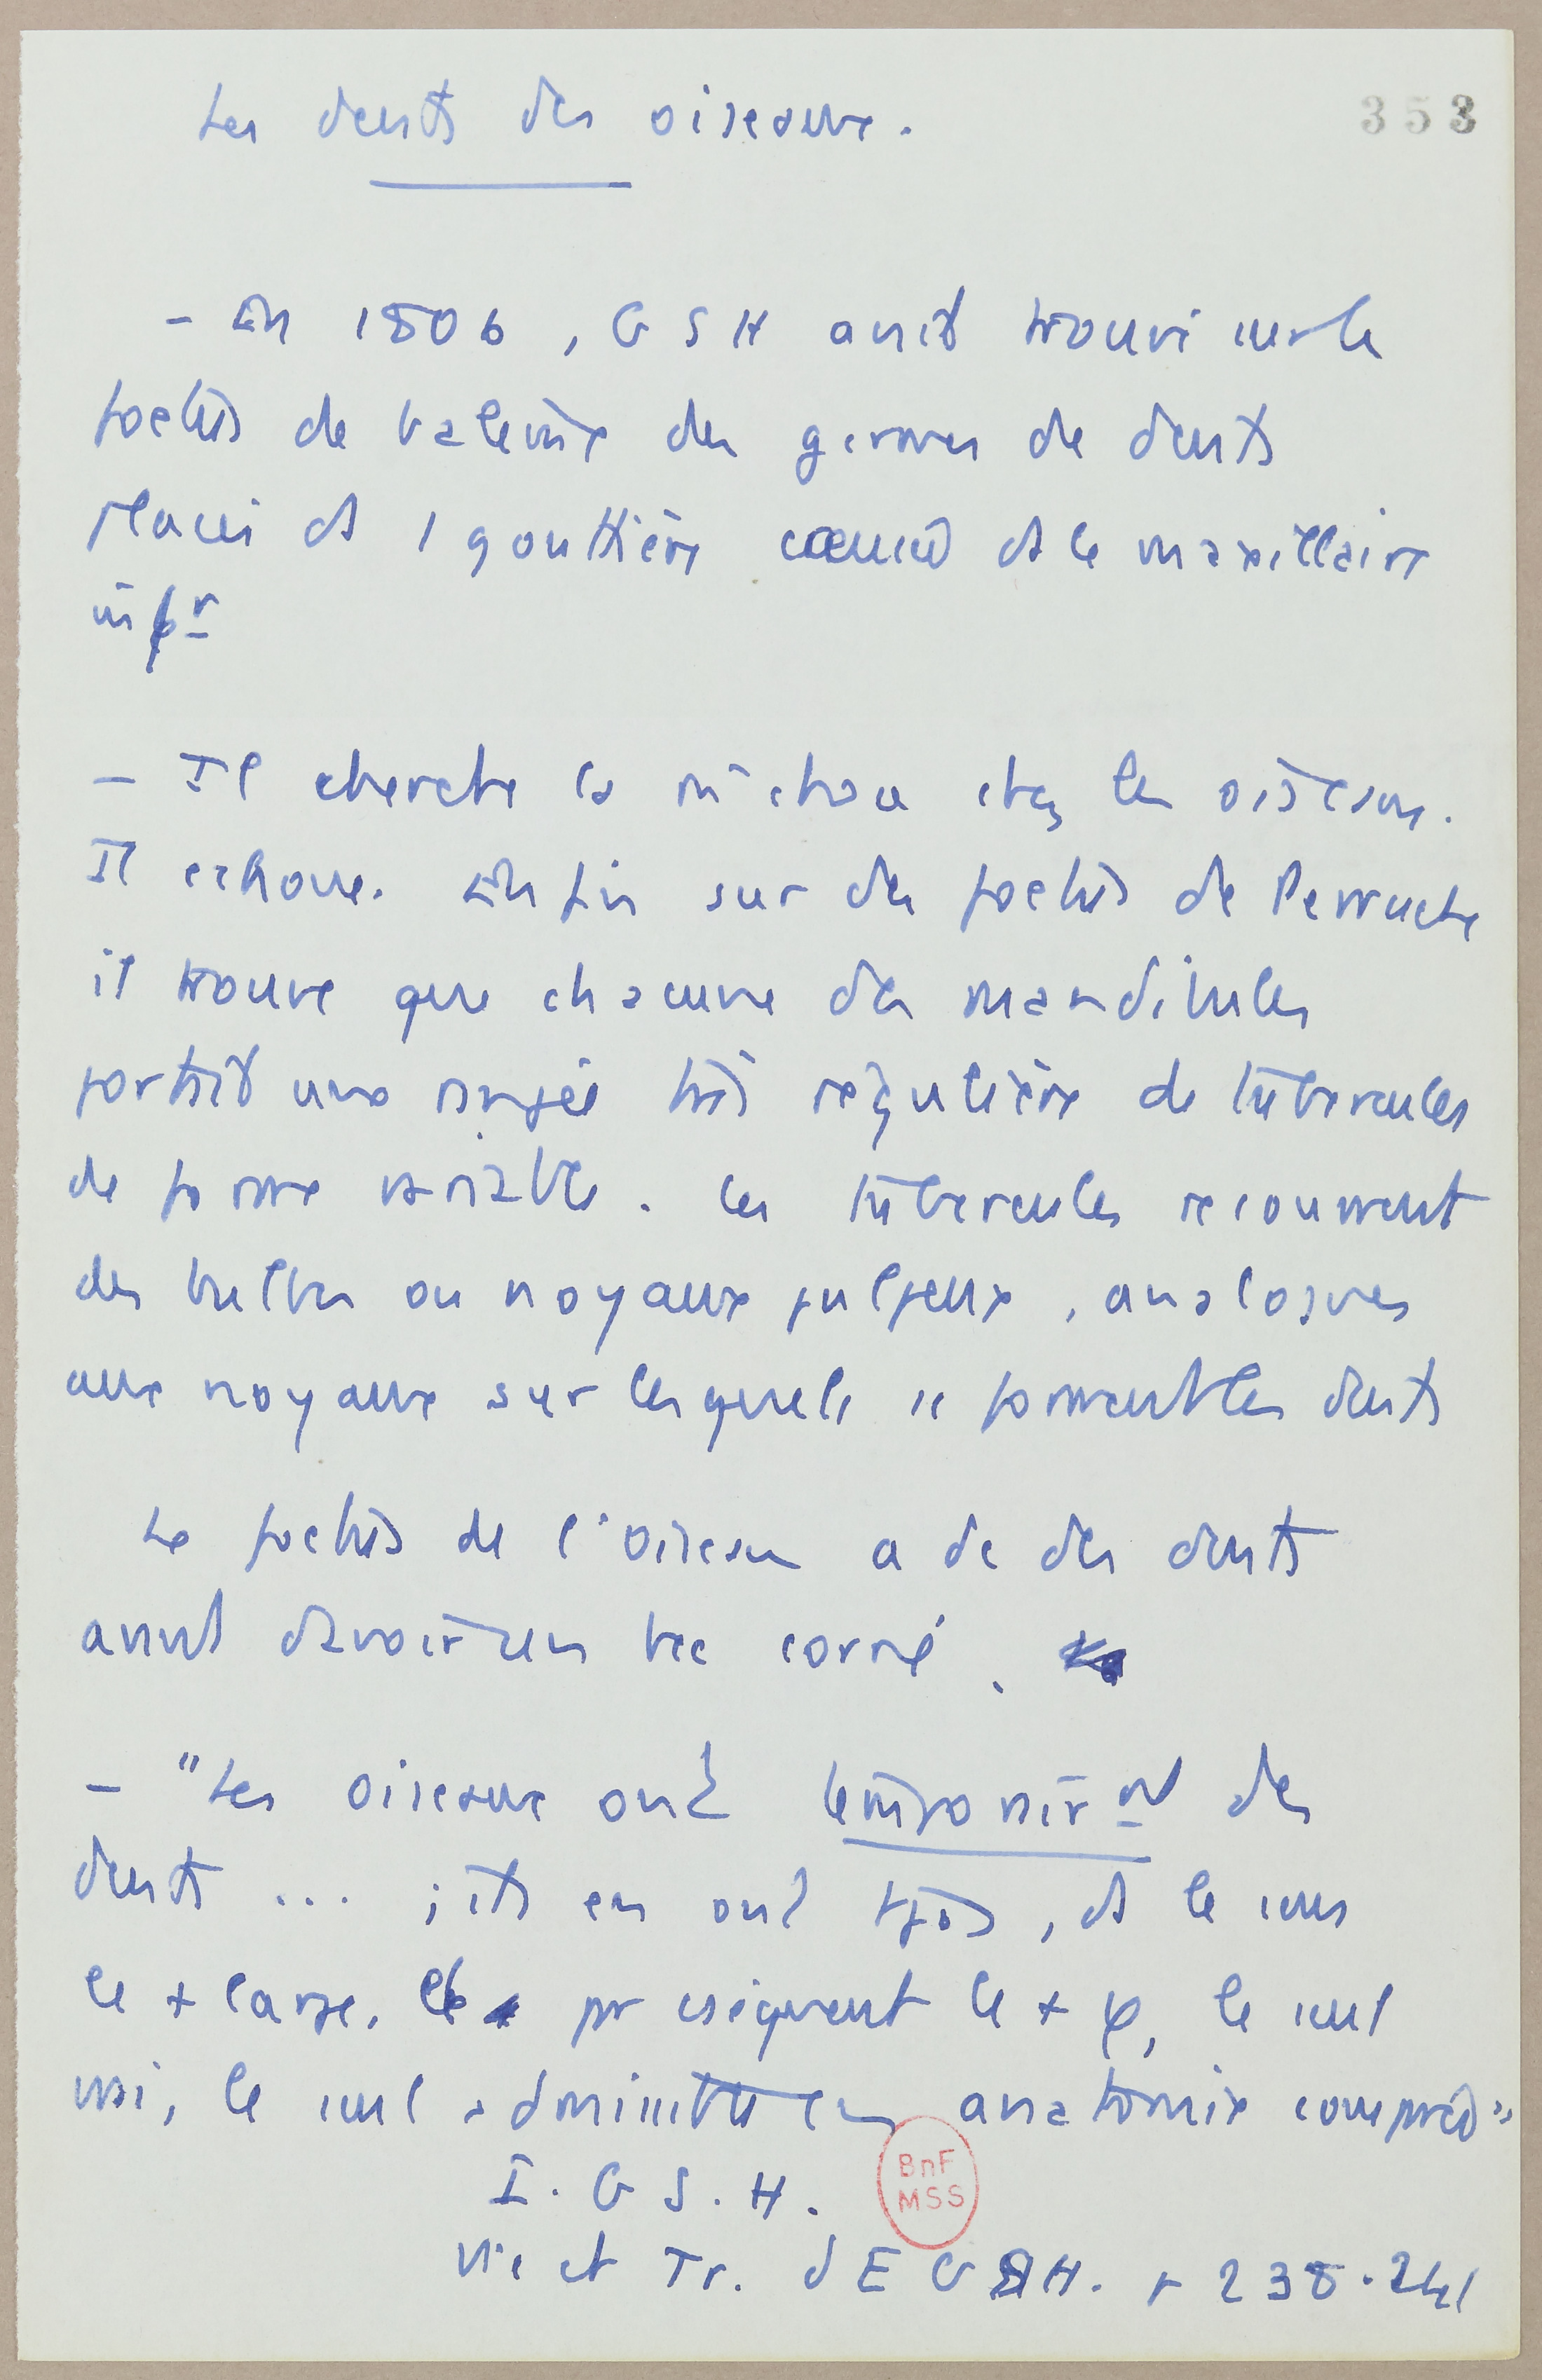 Les dents des oiseaux.
353
- En 1806, G S H avait trouvé sur le
foetus de baleine des germes de dents
placés ds 1 gouttière creusée ds le maxillaire
infr
- Il cherche la m chose chez les oiseaux.
Il échoue. Enfin sur des foetus de Perruche
il trouve que chacune des mandibules
portait une rangée très régulière de tubercules
de forme variable. Ces tubercules recouvrent
des bulbes ou noyaux pulpeux, analogues
aux noyaux sur lesquels se forment les dents
Le foetus de l'oiseau a dc des dents
avant d'avoir un bec corné.
- "Les oiseaux ont temporairt des
dents ... ; ils en ont tjs, ds le sens
le + large, et par cséquent le + φ, le seul
vrai, le seul admissible en anatomie comparée"
I. G S. H.
BnF
MSS
Vie et Tr. d E G S H. p 238-241